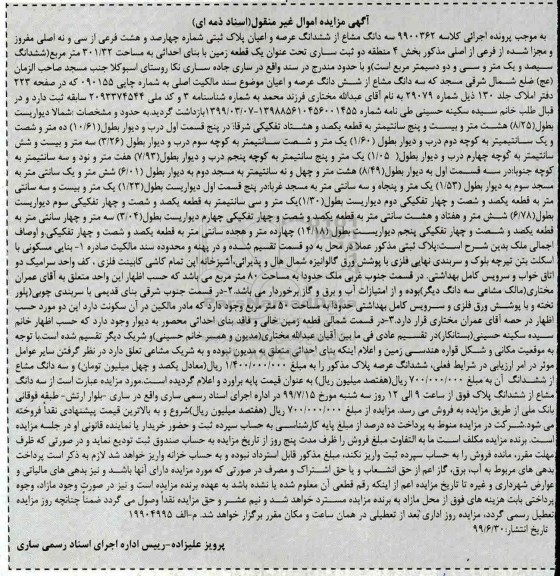 آگهی مزایده اموال غیر منقول(اسناد ذمه ای)
به موجب پرونده اجرائی کلاسه ۹۹۰۰۳۶۲ سه دانگ مشاع از ششدانگ عرصه و اعیان پلاک ثبتی شماره چهارصد و هشت فرعی از سی و نه اصلی مفروز
و مجزا شده از فرعی از اصلی مذکور بخش ۴ منطقه دو ثبت ساری تحت عنوان یک قطعه زمین با بنای احداثی به مساحت ۳۰۱/۳۲ متر مربع(ششدانگ
سیصد و یک متر و سی و دو دسیمتر مربع است)و با حدود مندرج در سند واقع در ساری جاده ساری نکا روستای اسبوکلا جنب مسجد صاحب الزمان
(عج) ضلع شمال شرقی مسجد که سه دانگ مشاع از شش دانگ عرصه و اعیان موضوع سند مالکیت اصلی به شماره چاپی ۰۹۰۱۵۵ که در صفحه ۲۲۳
دفتر املاک جلد ۱۳۰ ذیل شماره ۲۹۰۷۹ به نام آقای عبدالله مختاری فرزند محمد به شماره شناسنامه ۳ و کد ملی ۲۰۹۳۳۷۴۵۴۴ سابقه ثبت دارد و در
قبال طلب خانم سیده سکینه حسینی طی نامه شماره ۱۳۹۸۸۵۶۱۰۴۵۶۰۰۱۴۵۵-۱۳۹۹/۰۳/۰۷ بازداشت گردید.به حدود و مشخصات :شمالا دیواریست
(۸/۲۵) هشت متر و بیست و پنج سانتیمتر به قطعه یکصد و هشتاد تفکیکی شرقا: در پنج قسمت اول درب و دیوار بطول (۱۰/۶۱) ده متر و شصت
و یک سانتیمتر به کوچه دوم درب و دیوار بطول (۱/۶۰) یک متر و شصت سانتیمتر به کوچه سوم درب و دیوار بطول (۳/۲۶) سه متر و بیست و شش
سانتیمتر به کوچه چهارم درب و دیوار بطول (۱/۰۵) یک متر و پنج سانتیمتر به کوچه پنجم درب و دیوار بطول(۷/۹۳) هفت متر و نود و سه سانتیمتر به
کوچه جنوبا:در سه قسمت اول به دیوار بطول(۸/۴۹) هشت متر و چهل و نه سانتیمتر به مسجد دوم به دیوار بطول (۶/۰۱) شش متر و یک سانتی متر به
مسجد سوم به دیوار بطول (۱/۵۳) یک متر و پنجاه و سه سانتی متر به مسجد غربا:در پنج قسمت اول دیواریست بطول(۱/۲۳) یک متر و بیست و سه سانتی
متر به قطعه یکصد و شصت و چهار تفکیکی دوم دیواریست بطول(۱/۳۰)یک متر و سی سانتیمتر به قطعه یکصد و شصت و چهار تفکیکی سوم دیواریست
بطول(۶/۷۸) شش متر و هفتاد و هشت سانتی متر به قطعه یکصد و شصت و چهار تفکیکی چهارم دیواریست بطول(۳/۰۴) سه متر و چهار سانتی متر به
قطعه یکصد و شصت و چهار تفکیکی پنجم دیواریست بطول(۱۴/۱۸) چهارده متر و هجده سانتی متر به قطعه یکصد و شصت و چهار تفکیکی.و اوصاف
اجمالی ملک بدین شرح است:پلاک ثبتی مذکور عملا در محل به دو قسمت تقسیم شده و در پهنه و محدوده سند مالکیت صادره ۱- بنایی مسکونی با
اسکلت بتن تیرچه بلوک و سربندی نهایی فلزی با پوشش ورق گالوانیزه شمال هال و پذیرائی،آشپزخانه اپن تمام کاشی کابینت فلزی ، کف واحد سرامیک دو
اتاق خواب و سرویس کامل بهداشتی. در قسمت جنوب غربی ملک حدودا به مساحت ۸۰ متر مربع می باشد که حسب اظهار این واحد متعلق به آقای عمران
مختاری(مالک مشاعی سه دانگ دیگر)بوده و از امتیازات آب و برق و گاز برخوردار می باشد.۲-در قسمت جنوب شرقی بنای قدیمی با سربندی چوبی(پلور
تخته و با پوشش ورق فلزی و سرویس کامل بهداشتی حدودا به مساحت ۸۰ متر مربع وجود که مادر مالکین در آن سکونت دارد این دو مورد حسب
اظهار در حصه آقای عمران مختاری قرار دارد.۳-در قسمت شمالی قطعه زمین خالی و فاقد بنای احداثی محصور به دیوار وجود دارد که حسب اظهار خانم
سیده سکینه حسینی(بستانکار)در تقسیم عادی فی ما بین آقیان عبدالله مختاری(مدیون و همسر خانم حسینی)و شریک دیگر تقسیم شده است.با توجه
به موقعیت مکانی و شکل قواره هندسی زمین و اعلام اینکه بنای احداثی متعلق به مدیون نبوده و به شریک مشاعی تعلق دارد در نظر گرفتن سایر عوامل
موثر در امر ارزیابی در شرایط فعلی، ششدانگ عرصه پلاک مذکور را به مبلغ ۱/۴۰۰/۰۰۰/۰۰۰ ریال(معادل یکصد و چهل میلیون تومان) و سه دانگ مشاع
از ششدانگ آن به مبلغ ۷۰۰/۰۰۰/۰۰۰ ریال(هفتصد میلیون ریال) به عنوان قیمت پایه برآورد و اعلام گردیده است.مورد مزایده عبارت است از سه دانگ
مشاع از ششدانگ پلاک فوق از ساعت ۹ الی ۱۲ روز سه شنبه مورخ ۹۹/۷/۱۵ در اداره اجرای اسناد رسمی ساری واقع در ساری -بلوار ارتش- طبقه فوقانی
بانک ملی از طریق مزایده به فروش می رسد. مزایده از مبلغ ۷۰۰/۰۰۰/۰۰۰ ریال (هفتصد میلیون ریال)شروع و به بالاترین قیمت پیشنهادی نقدا فروخته
می شود.شرکت در مزایده منوط به پرداخت ده درصد از مبلغ پایه کارشناسی به حساب سپرده ثبت و حضور خریدار یا نماینده قانونی او در جلسه مزایده
است. برنده مزایده مکلف است ما به التفاوت مبلغ فروش را ظرف مدت پنج روز از تاریخ مزایده به حساب صندوق ثبت تودیع نماید و در صورتی که ظرف
مهلت مقرر، مانده فروش را به حساب سپرده ثبت واریز نکند، مبلغ مذکور قابل استرداد نبوده و به حساب خزانه واریز خواهد شد لازم به ذکر است پرداخت
بدهی های مربوط به آب، برق، گاز اعم از حق انشعاب و یا حق اشتراک و مصرف در صورتی که مورد مزایده دارای آنها باشد و نیز بدهی های مالیاتی و
عوارض شهرداری و غیره تا تاریخ مزایده اعم از اینکه رقم قطعی آن معلوم شده یا نشده باشد به عهده برنده مزایده است و نیز در صورت وجود مازاد، وجوه
پرداختی بابت هزینه های فوق از محل مازاد به برنده مزایده مسترد خواهد شد و نیم عشر و حق مزایده نقدا وصول می گردد ضمنا چنانچه روز مزایده
تعطیل رسمی گردد، مزایده روز اداری بعد از تعطیلی در همان ساعت و مکان مقرر برگزار خواهد شد. م-الف ۱۹۹۰۴۹۹۵
تاریخ انتشار: ۹۹/۶/۳۰
پرویز علیزاده-رییس اداره اجرای اسناد رسمی ساری